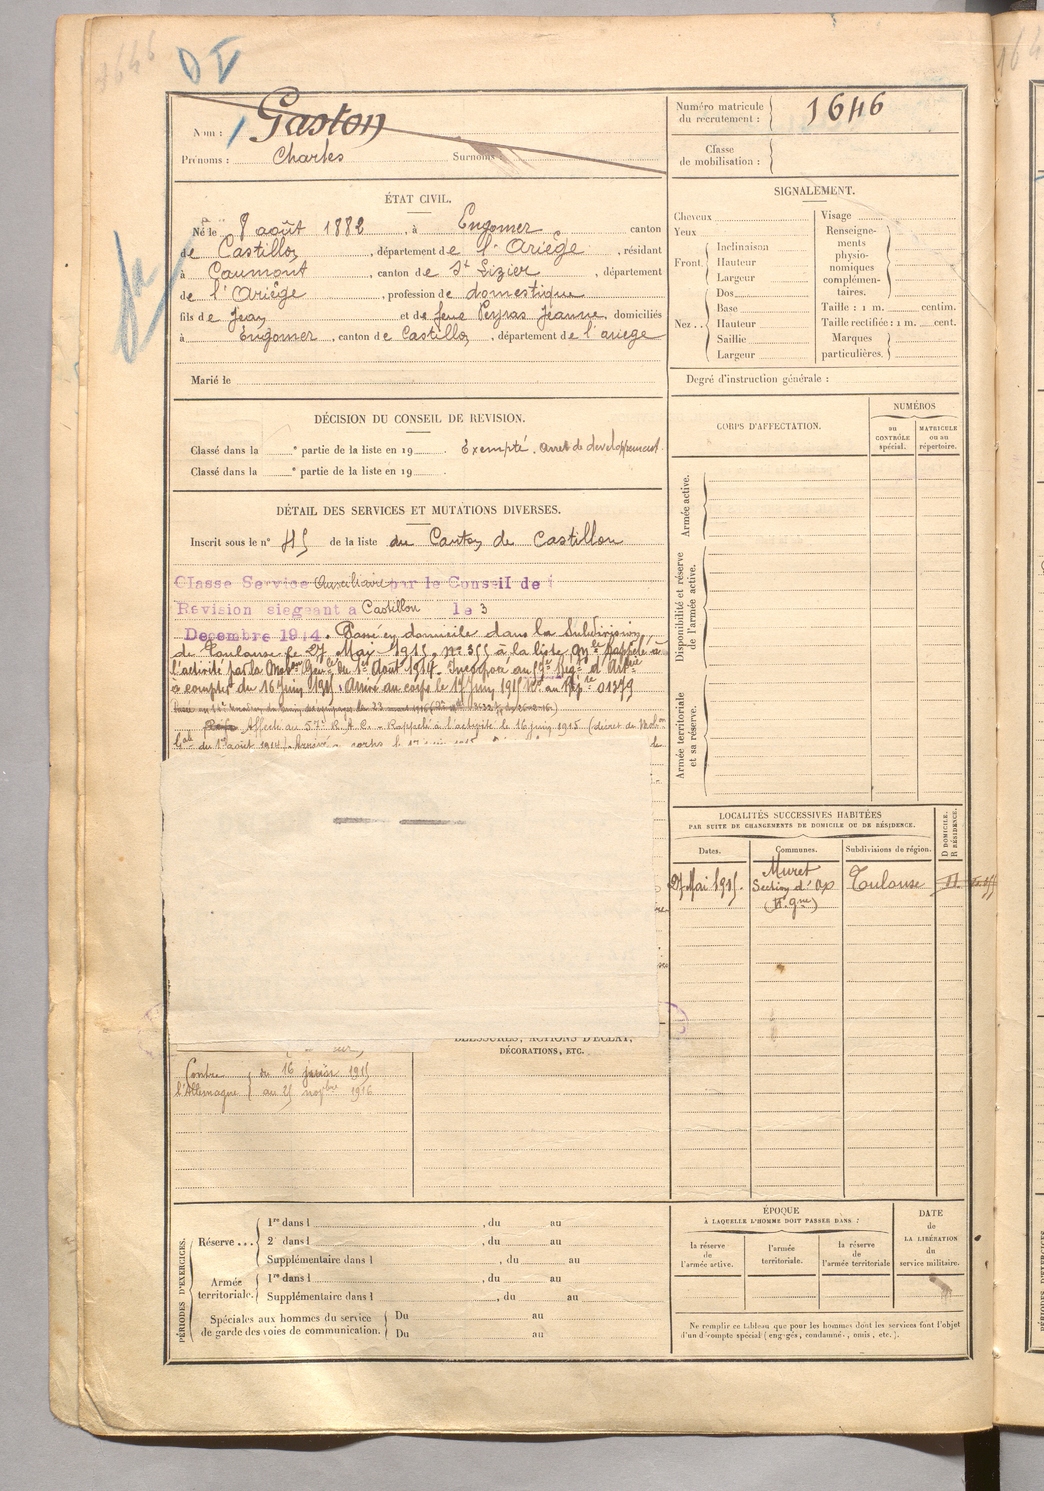 1646
D V
Nom : Gaston
Prénoms : Charles Surnoms :
Numéro matricule du recrutement : 1646
Classe de mobilisation :
ÉTAT CIVIL.
Né le 8 août 1882, à Engomer canton
de Castillon, département de l'Ariège, résidant
à Caumont, canton de St Lizier, département
de l'Ariège, profession de domestique
fils de Jean et de feue Peyras Jeanne, domiciliés
à Engomer, canton de Castillon, département de l'ariege
Marié le
DÉCISION DU CONSEIL DE REVISION.
Classé dans la e partie de la liste en 19 . Exempté. Arret de developpement.
Classé dans la e partie de la liste en 19 .
DÉTAIL DES SERVICES ET MUTATIONS DIVERSES.
Inscrit sous le n° 45 de la liste du Canton de Castillon
Classe Service Auxiliaire par le Conseil de
Revision siegeant a Castillon le 3
Decembre 1914. Passé en domicile dans la Subdivision
de Toulouse le 27 Mai 1915, no 355 à la liste Rappelé à
l'activité par la Mob Gen du 1er Août 1914. Incorporé au 57e Reg d'Art
à compter du 16 Juin 1915. Arrivé au corps le 17 Juin 1915 No au Rép 01379
Affecté au 57e R.A.C. - Rappelé à l'activité le 16 juin 1915 (décret de Mobon
Gale du 1er août 1914). Arrivé corps le 17 juin 1915
Contre l'Allemagne du 16 1915
au 25 novbre 1916
BLESSURES, ACTIONS D'ÉCLAT,
DÉCORATIONS, ETC.
SIGNALEMENT.
Cheveux
Yeux
Front. Inclinaison
Hauteur
Largeur
Nez .. Dos
Base
Hauteur
Saillie
Largeur
Visage
Renseignements physionomiques complémentaires.
Taille : 1 m. centim.
Taille rectifiée : 1 m. cent.
Marques particulières.
Degré d'instruction générale :
CORPS D'AFFECTATION.
NUMÉROS
au CONTRÔLE spécial.
MATRICULE ou au répertoire.
Armée active.
Disponibilité et réserve de l'armée active.
Armée territoriale et sa réserve.
LOCALITÉS SUCCESSIVES HABITÉES
PAR SUITE DE CHANGEMENTS DE DOMICILE OU DE RÉSIDENCE.
Dates. Communes. Subdivisions de région. D DOMICILE. R RÉSIDENCE.
27 Mai 1915. Muret Toulouse
PÉRIODES D'EXERCICES.
Réserve ... 1re dans l , du au
2e dans l , du au
Supplémentaire dans l , du au
Armée territoriale. 1re dans l , du au
Supplémentaire dans l , du au
Spéciales aux hommes du service de garde des voies de communication. Du au
Du au
ÉPOQUE
À LAQUELLE L'HOMME DOIT PASSER DANS :
la réserve de l'armée active.
l'armée territoriale.
la réserve de l'armée territoriale
DATE de LA LIBÉRATION du service militaire.
Ne remplir ce tableau que pour les hommes dont les services font l'objet
d'un décompte spécial (engagés, condamnés, omis, etc.).